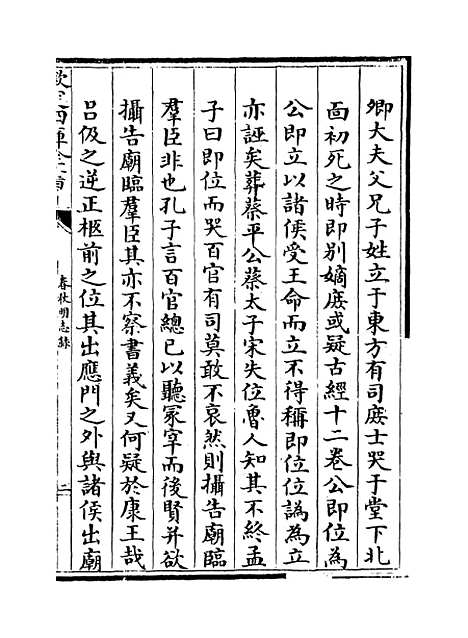 卿大夫父兄子姓立于東方有司庶士哭于堂下北
面初死之時即别嫡庶或疑古經十二卷公即位為
公即立以諸侯受王命而立不得稱即位位譌為立
亦誣矣葬蔡平公蔡太子宋失位魯人知其不終孟
子曰即位而哭百官有司莫敢不哀然則攝告廟臨
羣臣非也孔子言百官總已以聽冡宰而後賢并欲
攝告廟臨羣臣其亦不察書義矣又何疑於康王哉
吕伋之逆正柩前之位其出應門之外與諸侯出廟
欽定四庫全書
春秋明志錄
二